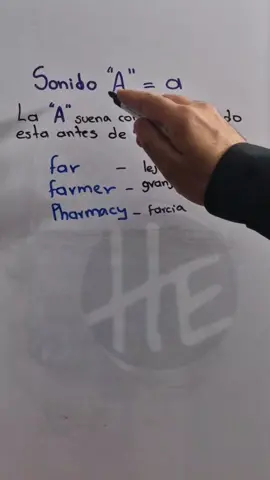 Sonido "A" = a
La "A" suena do
esta antes de
far -
farmer -
Pharmacy - farcia
HE